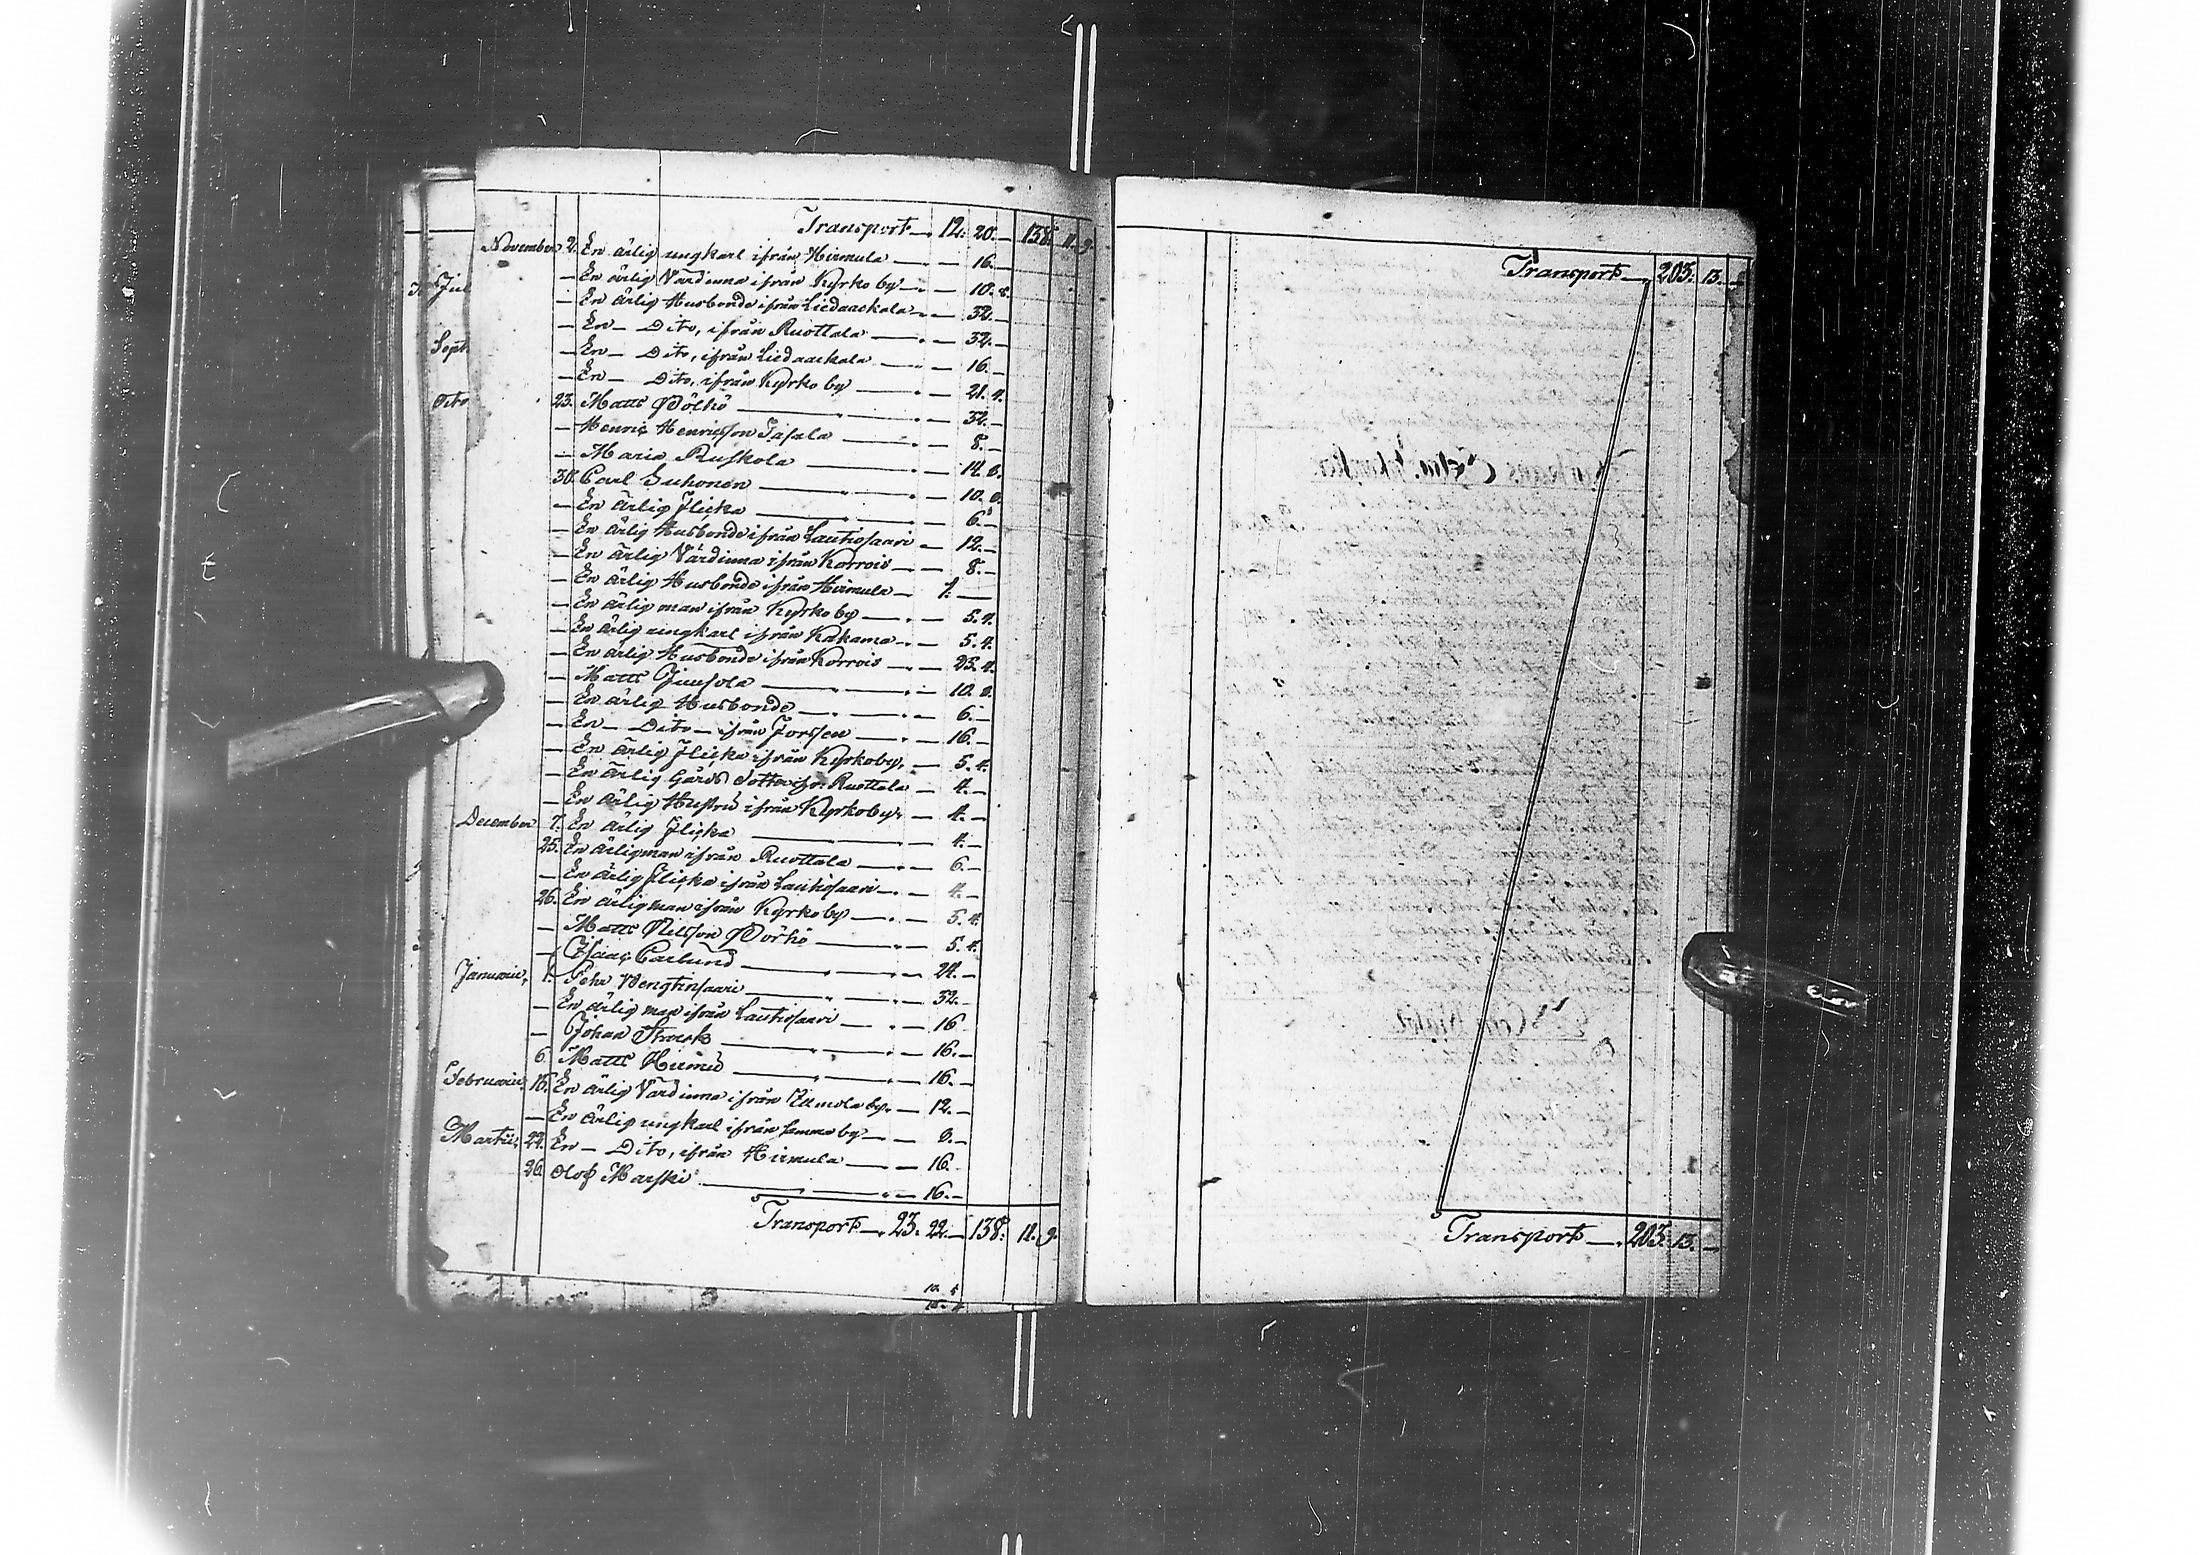 Transport 12. 20. — 138. 11. 9.
November 2. En ärlig ungkarl ifrån Hirmula — 16. —
— En ärlig Värdinna ifrån Kyrkoby — 10. 8.
— En ärlig Husbonde ifrån Liedaackala — 32. —
— En — Dito, ifrån Ruottala — 32. —
— En — Dito, ifrån Liedaackala — 16. —
— En — Dito, ifrån Kyrkoby — 21. 4.
23. Matts Pölhö — 32. —
— Henric Henricsson Tasala — 8. —
— Maria Ruskola — 12. 8.
30. Carl Suhonen — 10. 8.
— En ärlig Flicka — 6. —
— En ärlig Husbonde ifrån Lautiosaari — 12. —
— En ärlig Värdinna ifrån Korrois — 8. —
— En ärlig Husbonde ifrån Hirmula — 1. —
— En ärlig man ifrån Kyrkoby — 5. 4.
— En ärlig ungkarl ifrån Kakama — 5. 4.
— En ärlig Husbonde ifrån Korrois — 23. 4.
— Matts Juusola — 10. 8.
— En ärlig Husbonde — 6. —
— En — Dito — ifrån Jorssen — 16. —
— En ärlig Flicka ifrån Kyrkoby, — 5. 4.
— En ärlig Gårds dotter ifr. Ruottala — 4. —
— En ärlig Hustru ifrån Kyrkoby, — 4. —
December 7. En ärlig Flicka — 4. —
25. En ärlig man ifrån Ruottala — 6. —
— En ärlig Flicka ifrån Lautiosaari — 4. —
26. En ärlig man ifrån Kyrkoby — 5. 4.
— Matts Nilsson Pörhö — 5. 4.
— Isaac Carlund — 24. —
Januarii, 1. Pehr Vengtinsaari — 32. —
— En ärlig man ifrån Lautiosaari — 16
— Johan Strack — 16. —
6. Matts Hirmu — 16. —
Februarii, 15. En ärlig Värdinna ifrån by, — 12. —
— En ärlig ungkarl ifrån samma by — 8. —
Martii, 22. En — Dito, ifrån Hirmula — 16.
26. Olof Marski — 16. —
Transport — 23. 22. — 138. 11. 9.
Jul
Sept
Octo
Transport — 203. 13. —
Transport — 203. 13. —